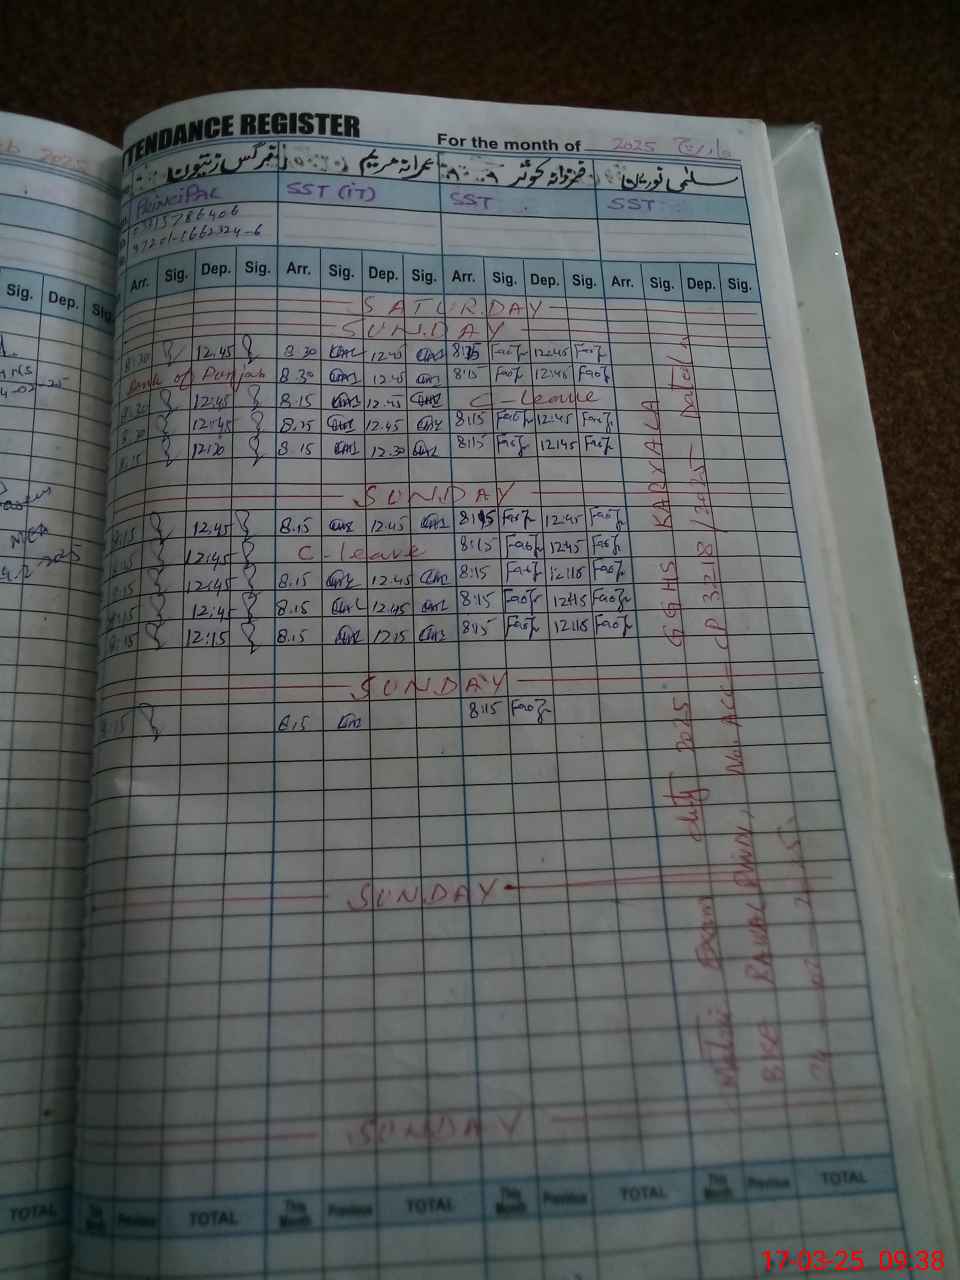 TTENDANCE REGISTER
For the month of 2025 مارچ
نرگس زیتون عمرانہ مریم فرزانہ کوثر سلمیٰ نورین
PRINCIPAL SST (IT) SST SST
03315786406
37201-1662324-6
Arr. Sig. Dep. Sig. Arr. Sig. Dep. Sig. Arr. Sig. Dep. Sig. Arr. Sig. Dep. Sig.
SATURDAY
SUNDAY
8:30 12:45 8.30 12.45 8:15 12:45
Bank of Punjab 8.30 12.45 8:15 12:45
8:30 12:45 8.15 12.45 C-leave
8:30 12:45 8.25 12.45 8:15 12:45
8:15 12:20 8.15 12.30 8:15 12:45
SUNDAY
8:15 12:45 8.15 12.45 8:15 12:45
8:15 12:45 C-leave 8:15 12:45
8:15 12:45 8.15 12.45 8:15 12:15
8:15 12:45 8.15 12.45 8:15 12:15
8:15 12:15 8.15 12.15 8:15 12:15
SUNDAY
8:15 8.15 8:15
SUNDAY
SUNDAY
Matric Exam duty 2025 GGHS KARYALA
BISE RAWALPINDI, No. ACC-CP 3218/2025 Dated
24-02-2025
Sig. Dep. Sig.
TOTAL This Month Previous TOTAL This Month Previous TOTAL This Month Previous TOTAL This Month Previous TOTAL
17-03-25 09:38